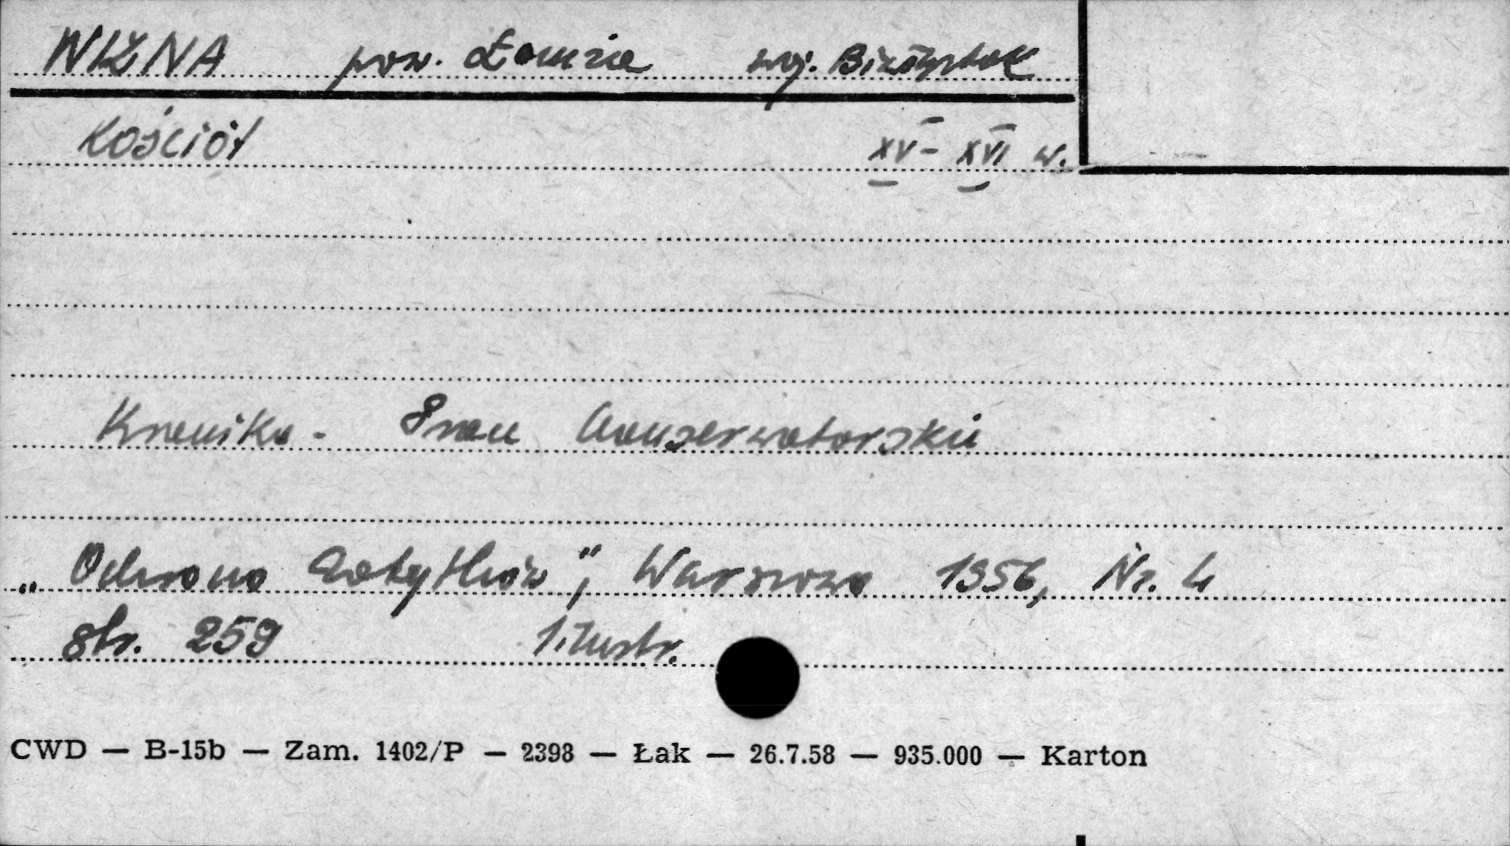 WIZNA pow. Łomża woj. Białystok
Kościół XV - XVI w.
Kronika - Prace konserwatorskie
„Ochrona Zabytków”, Warszawa 1956, Nr. 4
str. 259 1 ilustr.
CWD — B-15b — Zam. 1402/P — 2398 — Łak — 26.7.58 — 935.000 — Karton